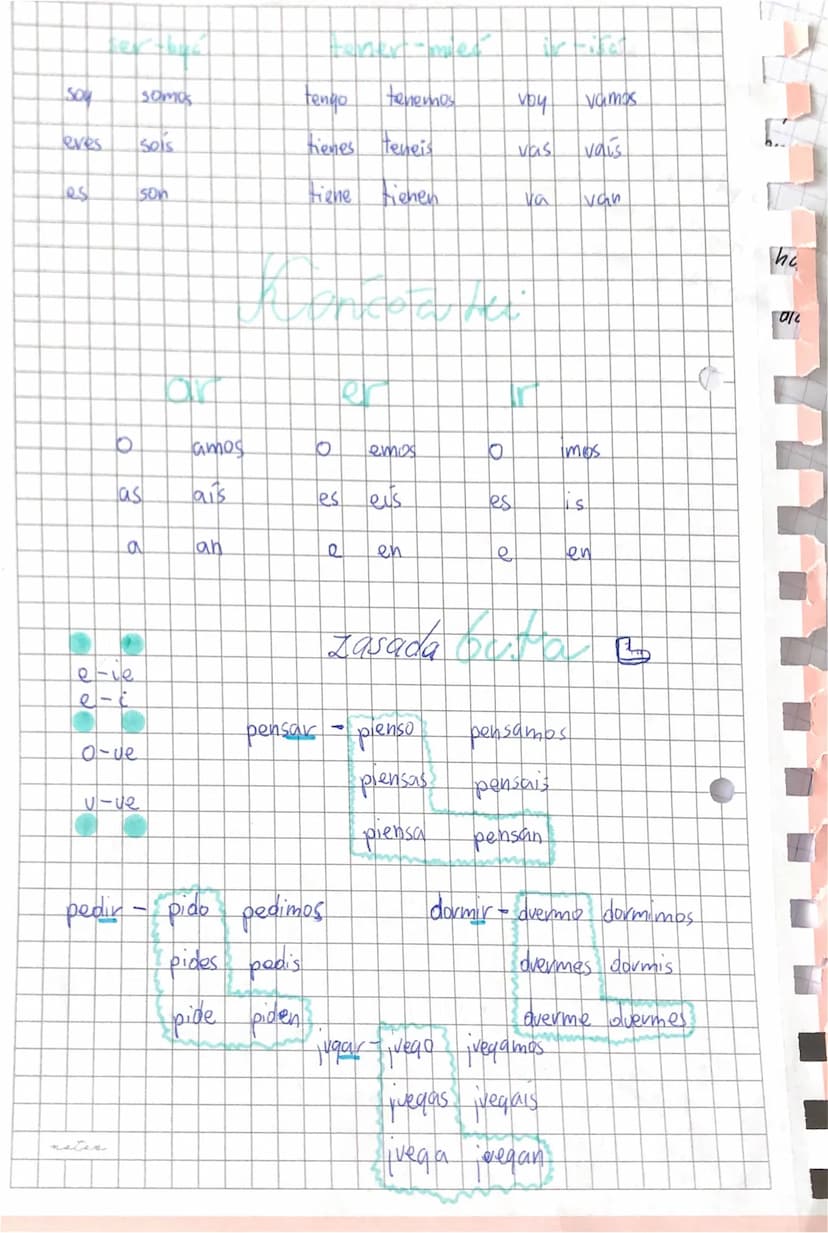 ser-być tener-mieć ir-iść
soy somos tengo tenemos voy vamos
eres soís tienes teneis vas vaís
es son tiene tienen va van
Końcówki
ar er ir
o amos o emos o imos
as aís es eís es is
a an e en e en
zasada buta
e-ie
e-i
o-ue
u-ue
pensar - pienso pensamos
piensas pensais
piensa pensan
pedir - pido pedimos dormir - duermo dormimos
pides pedis duermes dormis
pide piden duerme duermes
jugar - juego juegamos
juegas juegais
juega juegan
notes